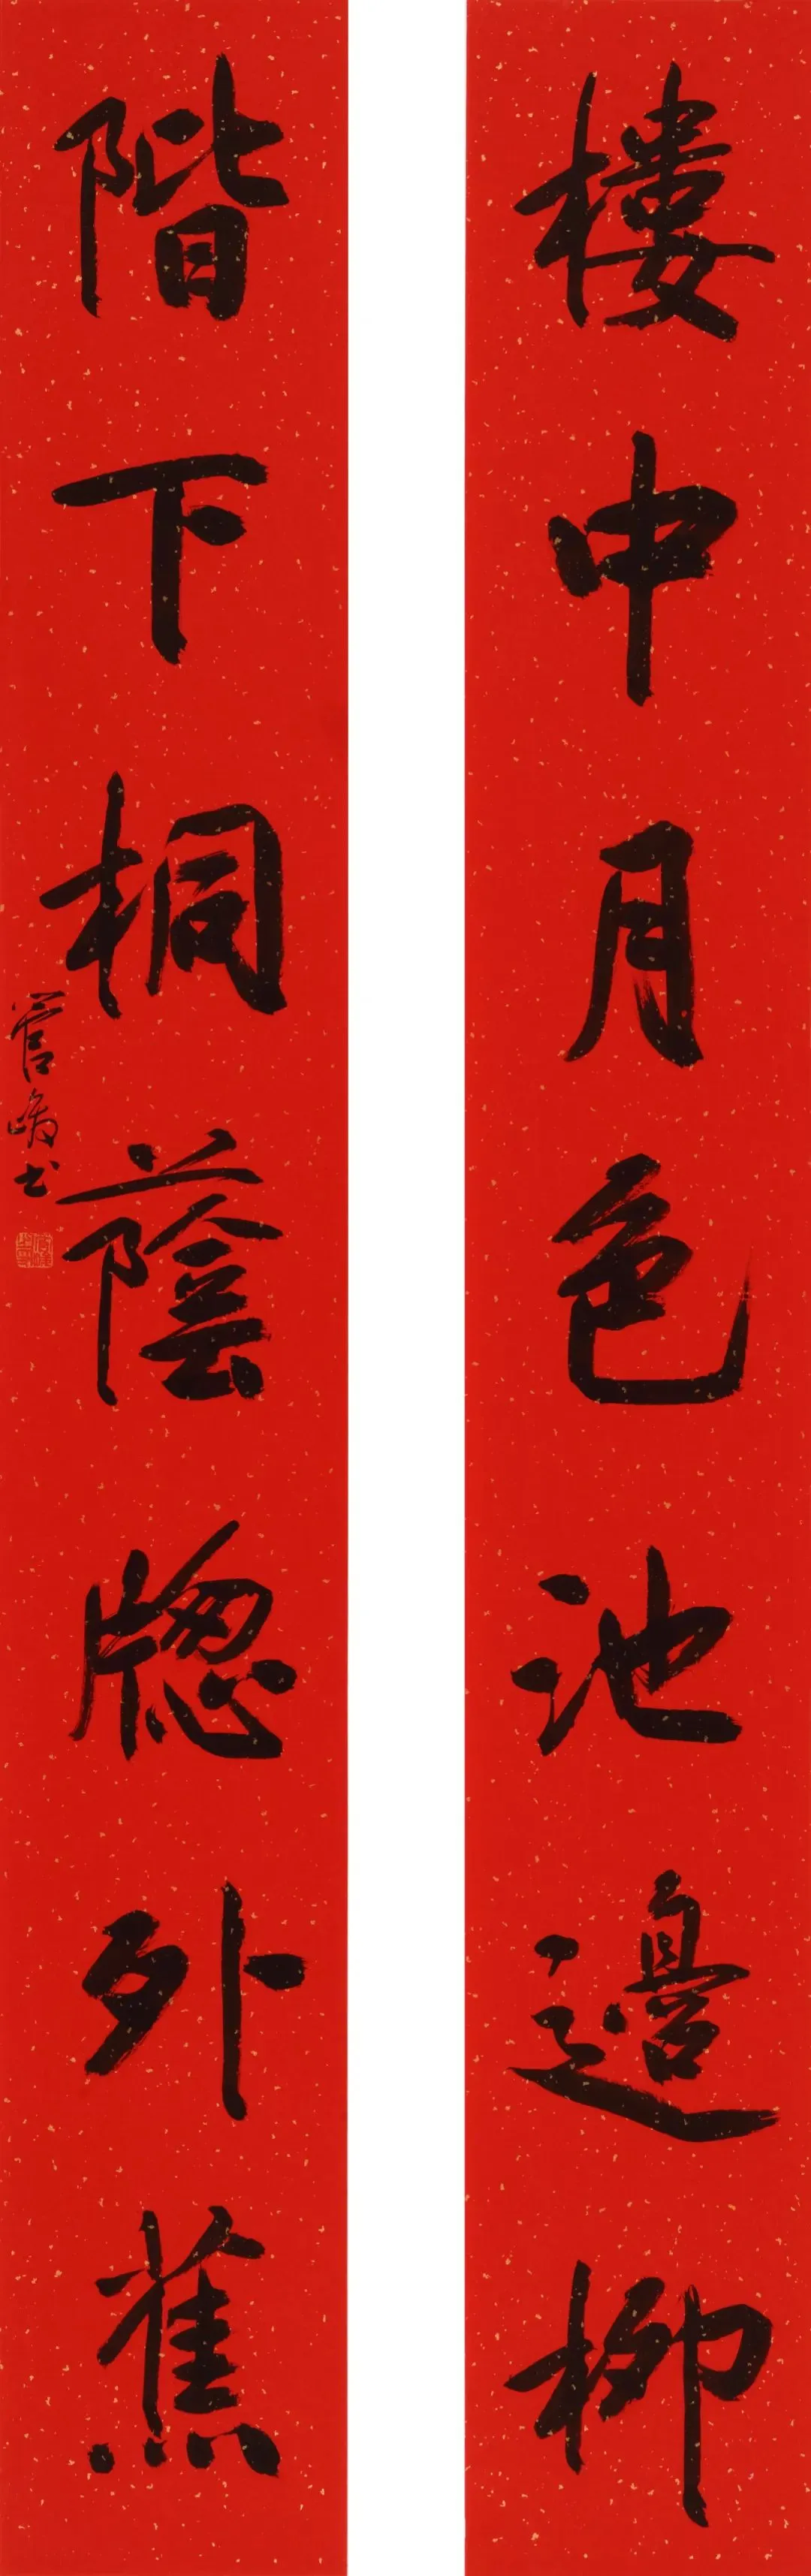 樓中月色池邊柳
階下桐蔭牕外蕉
管峻书